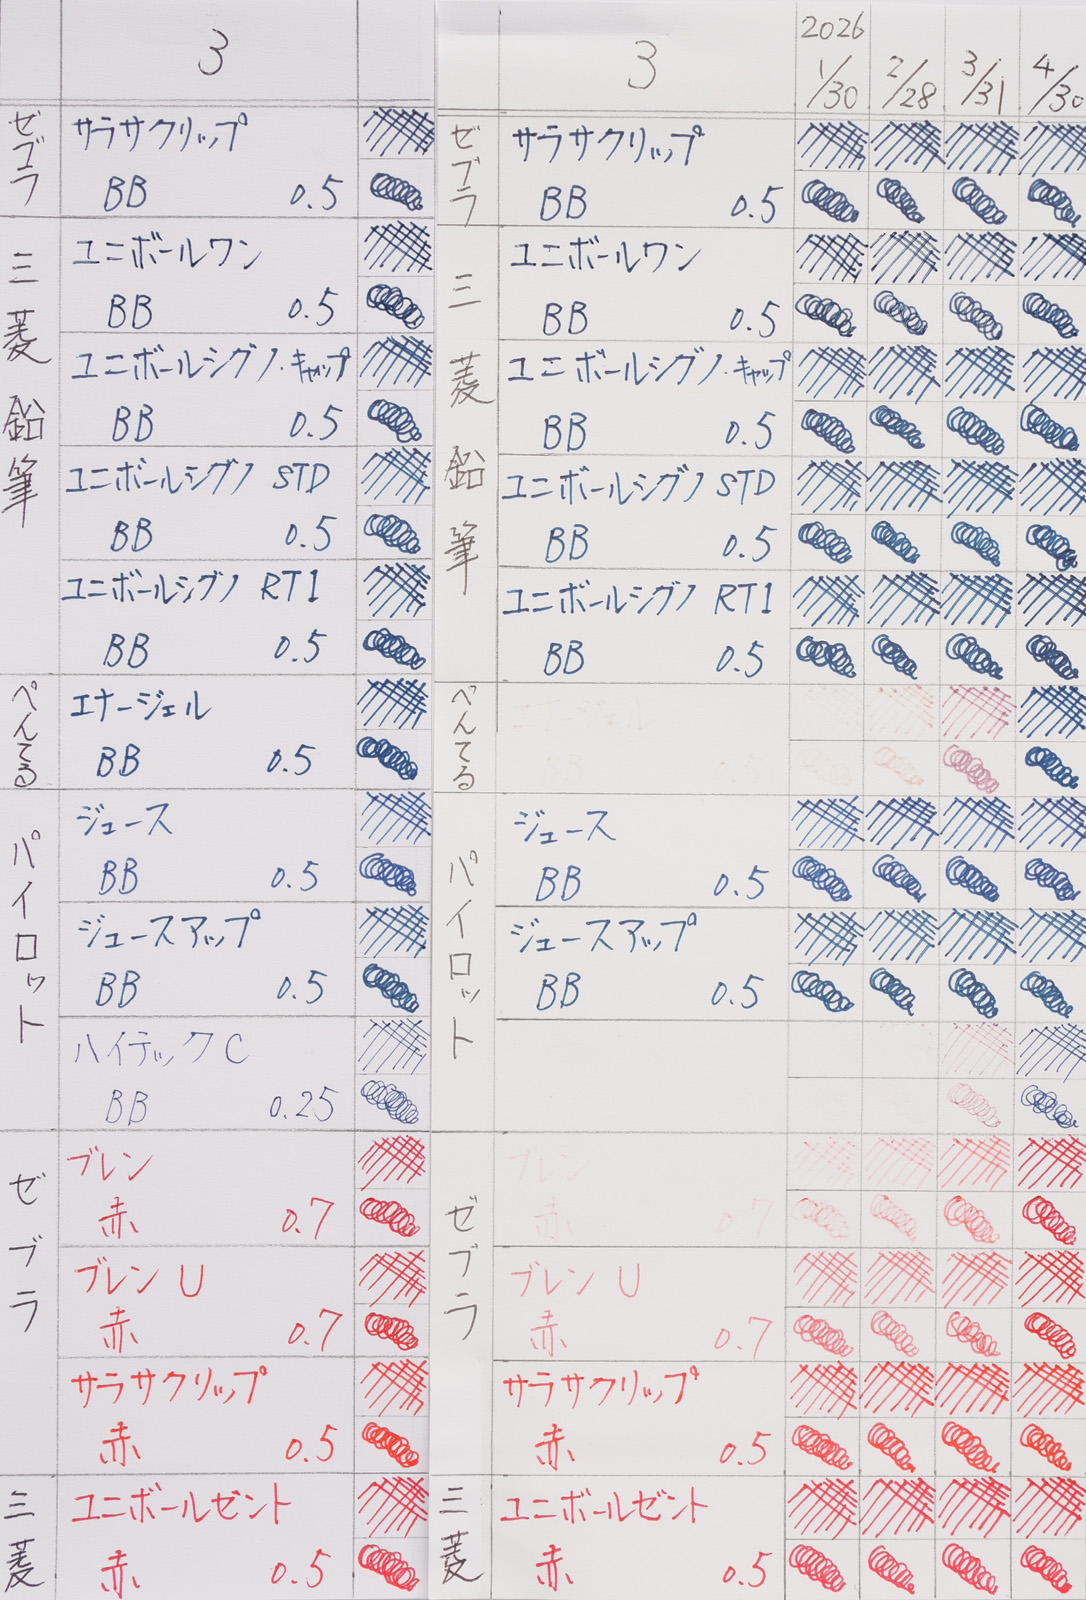 3
ゼブラ
サラサクリップ
BB 0.5
三菱鉛筆
ユニボールワン
BB 0.5
ユニボールシグノ・キャップ
BB 0.5
ユニボールシグノ STD
BB 0.5
ユニボールシグノ RT1
BB 0.5
ぺんてる
エナージェル
BB 0.5
パイロット
ジュース
BB 0.5
ジュースアップ
BB 0.5
ハイテックC
BB 0.25
ゼブラ
ブレン
赤 0.7
ブレンU
赤 0.7
サラサクリップ
赤 0.5
三菱
ユニボールゼント
赤 0.5
3
2026
1/30 2/28 3/31 4/30
ゼブラ
サラサクリップ
BB 0.5
三菱鉛筆
ユニボールワン
BB 0.5
ユニボールシグノ・キャップ
BB 0.5
ユニボールシグノ STD
BB 0.5
ユニボールシグノ RT1
BB 0.5
ぺんてる
エナージェル
BB
パイロット
ジュース
BB 0.5
ジュースアップ
BB 0.5
ゼブラ
ブレン
赤 0.7
ブレンU
赤 0.7
サラサクリップ
赤 0.5
三菱
ユニボールゼント
赤 0.5